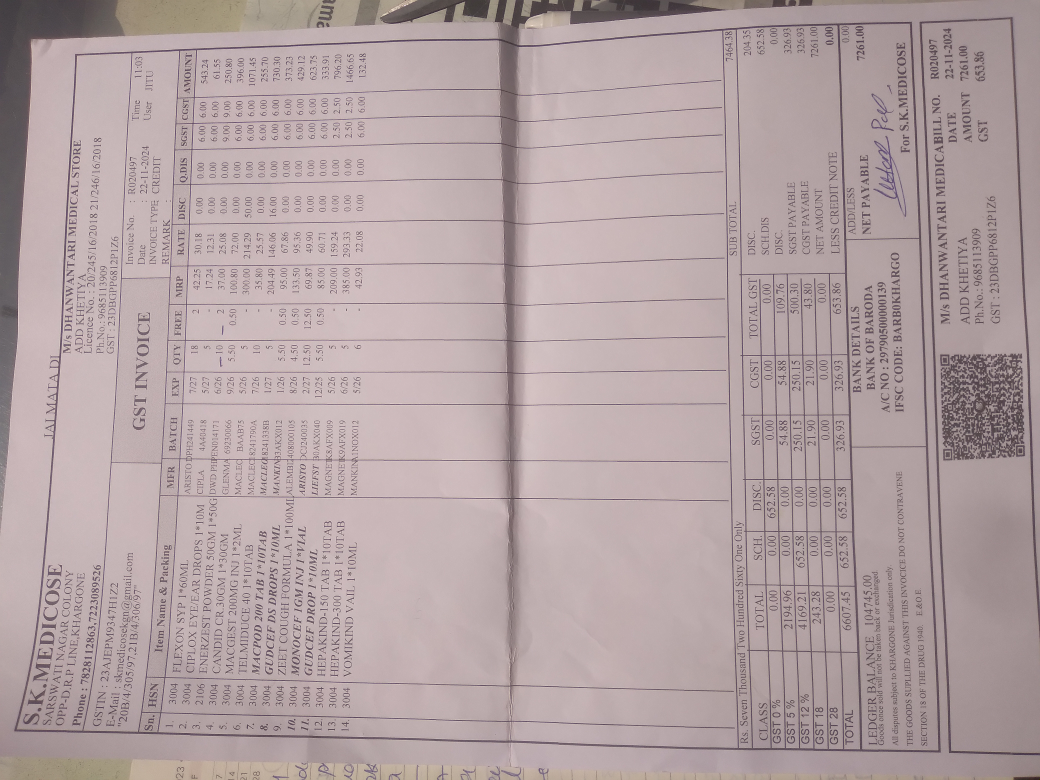 JAI MATA DI
S.K.MEDICOSE
SARSWATI NAGAR COLONY
OPP-D.R.P LINE,KHARGONE
Phone : 7828112863,7223089526
GSTIN : 23AJEPM9347H1Z2
E-Mail : skmedicosekgn@gmail.com
"20B/4/305/97,21B/4/306/97"
M/s DHANWANTARI MEDICAL STORE
ADD KHETIYA
Licence No. : 20/245/16/2018 21/246/16/2018
Ph.No: 9685113909
GST : 23DBGPP6812P1Z6
GST INVOICE
Invoice No. : R020497 Time 11:03
Date : 22-11-2024 User JITU
INVOICE TYPE CREDIT
REMARK :
Sn. HSN Item Name & Packing MFR BATCH EXP QTY FREE MRP RATE DISC Q.DIS SGST CGST AMOUNT
1. 3004 FLEXON SYP 1*60ML ARISTO DPH241449 7/27 18 2 42.25 30.18 0.00 0.00 6.00 6.00 543.24
2. 3004 CIPLOX EYE/EAR DROPS 1*10M CIPLA 4A40418 5/27 5 - 17.24 12.31 0.00 0.00 6.00 6.00 61.55
3. 2106 ENERZESIT POWDER 50GM 1*50G DWD PH 6/26 10 2 37.00 25.08 0.00 0.00 9.00 9.00 250.80
4. 3004 CANDID CR.30GM 1*30GM GLENMA 69230666 9/26 5.50 0.50 100.80 72.00 0.00 0.00 6.00 6.00 396.00
5. 3004 MACGEST 200MG INJ 1*2ML MACLEC BAAB75 5/26 5 - 300.00 214.29 50.00 0.00 6.00 6.00 1071.45
6. 3004 TELMIDUCE 40 1*10TAB MACLEC 7/26 10 - 35.80 25.57 0.00 0.00 6.00 6.00 255.70
7. 3004 MACPOD 200 TAB 1*10TAB MACLEC 1/27 5 - 204.49 146.06 0.00 0.00 6.00 6.00 730.30
8. 3004 GUDCEF DS DROPS 1*10ML MANKIN 1/26 5.50 0.50 95.00 67.86 16.00 0.00 6.00 6.00 373.23
9. 3004 ZEET COUGH FORMULA 1*100ML ALEMBIC 8/26 4.50 0.50 133.50 95.36 0.00 0.00 6.00 6.00 429.12
10. 3004 MONOCEF 1GM INJ 1*VIAL ARISTO 2/27 12.50 12.50 69.87 49.90 0.00 0.00 6.00 6.00 623.75
11. 3004 GUDCEF DROP 1*10ML LIEFST 12/25 5.50 0.50 85.00 60.71 0.00 0.00 6.00 6.00 333.91
12. 3004 HEPAKIND-150 TAB 1*10TAB MAGNET 5/26 5 - 209.00 159.24 0.00 0.00 2.50 2.50 796.20
13. 3004 HEPAKIND-300 TAB 1*10TAB MAGNET 6/26 5 - 385.00 293.33 0.00 0.00 2.50 2.50 1466.65
14. 3004 VOMIKIND VAIL 1*10ML MANKIN 5/26 6 - 42.93 22.08 0.00 0.00 6.00 6.00 132.48
Rs. Seven Thousand Two Hundred Sixty One Only
SUB TOTAL 7464.38
CLASS TOTAL SCH. DISC. SGST CGST TOTAL GST
GST 0 % 0.00 0.00 652.58 0.00 0.00 0.00
GST 5 % 2194.96 0.00 0.00 54.88 54.88 109.76
GST 12 % 4169.21 652.58 0.00 250.15 250.15 500.30
GST 18 243.28 0.00 0.00 21.90 21.90 43.80
GST 28 0.00 0.00 0.00 0.00 0.00 0.00
TOTAL 6607.45 652.58 652.58 326.93 326.93 653.86
DISC. 204.35
SCH.DIS 652.58
DISC. 0.00
SGST PAYABLE 326.93
CGST PAYABLE 326.93
NET AMOUNT 7261.00
LESS CREDIT NOTE 0.00
ADD/LESS 0.00
NET PAYABLE 7261.00
For S.K.MEDICOSE
LEDGER BALANCE 104745.00
Goods once sold will not be taken back or exchanged
All disputes subject to KHARGONE Jurisdication only
THE GOODS SUPLLIED AGAINST THIS INVOCICE DO NOT CONTRAVENE
SECTION 18 OF THE DRUG 1940. E & O.E
BANK DETAILS
BANK OF BARODA
A/C NO : 29790500000139
IFSC CODE: BARB0KHARGO
M/s DHANWANTARI MEDICABILL NO. R020497
ADD KHETIYA DATE 22-11-2024
Ph.No.: 9685113909 AMOUNT 7261.00
GST : 23DBGPP6812P1Z6 GST 653.86